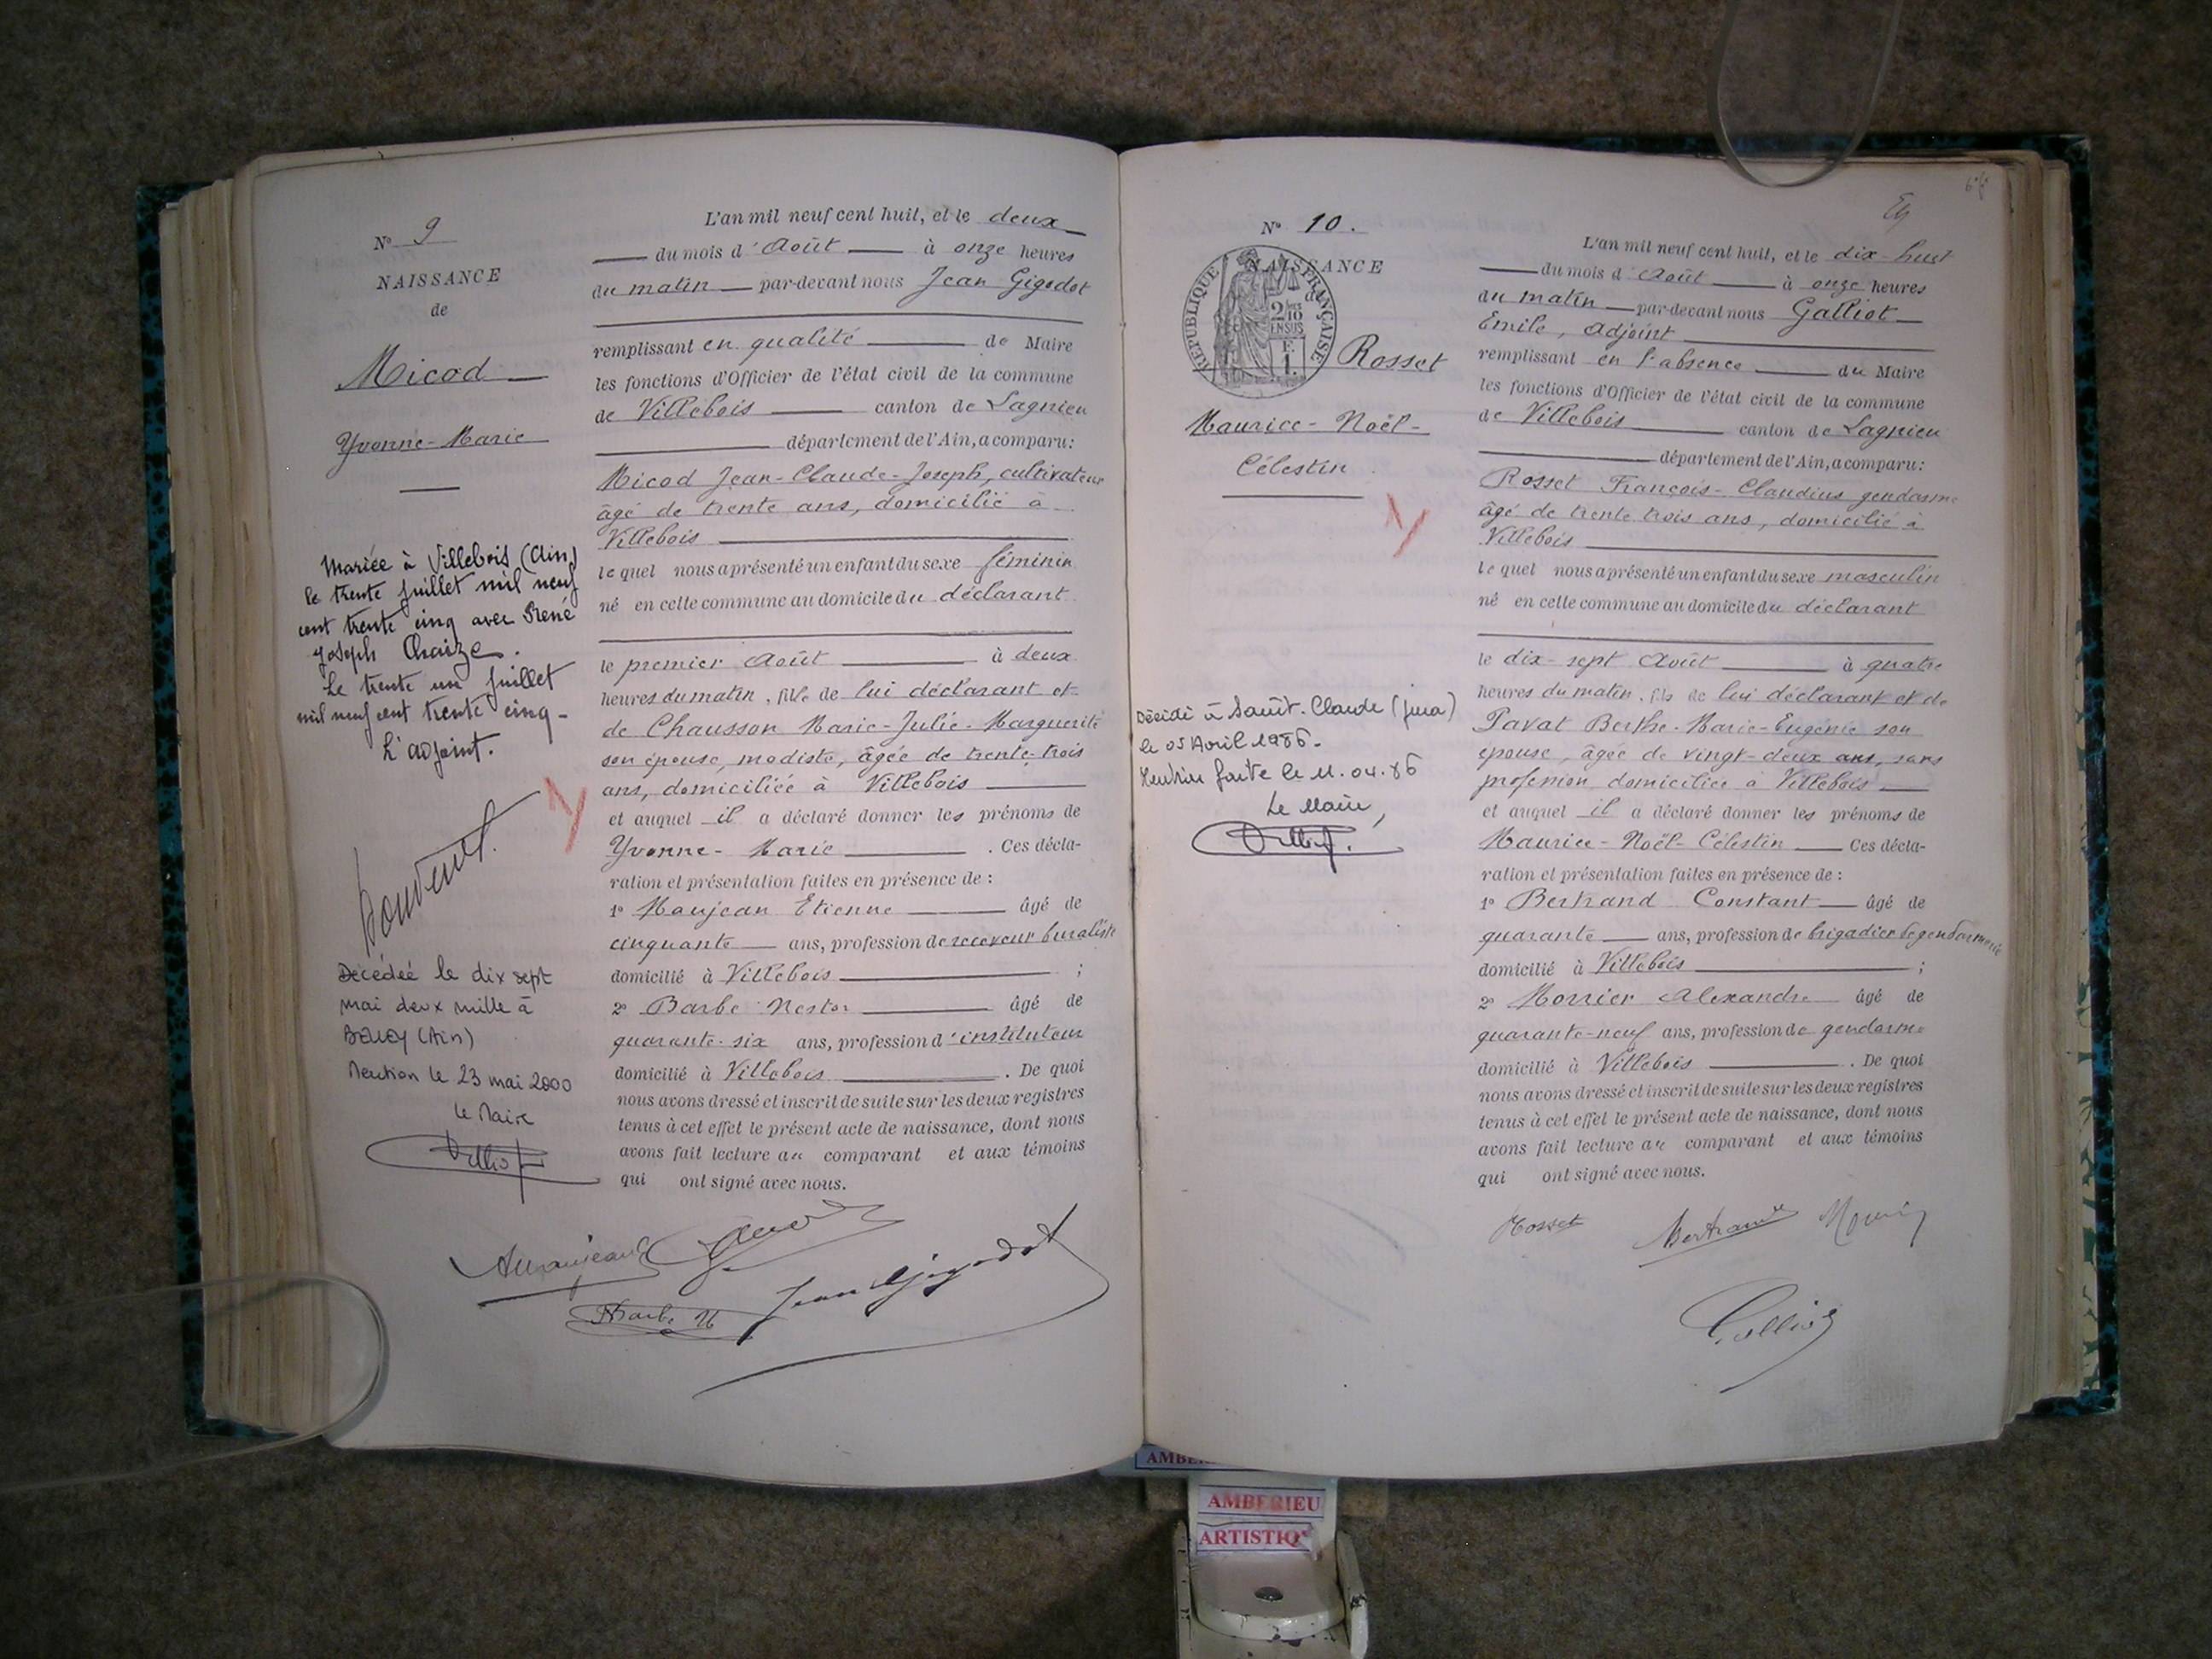 N° 9
NAISSANCE
de
Micod
Yvonne-Marie
Mariée à Villebois (Ain)
le trente juillet mil neuf
cent trente cinq avec René
Joseph Chaize.
Le trente un juillet
mil neuf cent trente cinq-
L'adjoint.
Décédée le dix sept
mai deux mille à
Belley (Ain)
Mention le 23 mai 2000
le Maire
L'an mil neuf cent huit, et le deux
du mois d'Août à onze heures
du matin par-devant nous Jean Gigodot
remplissant en qualité de Maire
les fonctions d'Officier de l'état civil de la commune
de Villebois canton de Lagnieu
département de l'Ain, a comparu:
Micod Jean-Claude-Joseph, cultivateur
âgé de trente ans, domicilié à
Villebois
lequel nous a présenté un enfant du sexe féminin
né en cette commune au domicile du déclarant
le premier Août à deux
heures du matin, fille de lui déclarant et
de Chausson Marie-Julie-Marguerite
son épouse, modiste, âgée de trente-trois
ans, domiciliée à Villebois
et auquel il a déclaré donner les prénoms de
Yvonne-Marie . Ces décla-
ration et présentation faites en présence de :
1° Maujean Etienne âgé de
cinquante ans, profession de receveur buraliste
domicilié à Villebois ;
2° Barbe Nestor âgé de
quarante-six ans, profession d'instituteur
domicilié à Villebois . De quoi
nous avons dressé et inscrit de suite sur les deux registres
tenus à cet effet le présent acte de naissance, dont nous
avons fait lecture au comparant et aux témoins
qui ont signé avec nous.
Barbe N
Jean Gigodot
N° 10.
NAISSANCE
de
REPUBLIQUE FRANÇAISE
2/10
EN SUS
F.
1.
Rosset
Maurice-Noël-
Célestin
Décédé à Saint-Claude (Jura)
le 05 Avril 1986-
Mention faite le 11.04.86
Le Maire,
L'an mil neuf cent huit, et le dix-huit
du mois d'Août à onze heures
du matin par-devant nous Galliot
Emile, adjoint
remplissant en l'absence du Maire
les fonctions d'Officier de l'état civil de la commune
de Villebois canton de Lagnieu
département de l'Ain, a comparu:
Rosset François-Claudius gendarme
âgé de trente trois ans, domicilié à
Villebois
lequel nous a présenté un enfant du sexe masculin
né en cette commune au domicile du déclarant
le dix-sept Août à quatre
heures du matin, fils de lui déclarant et de
Pavat Berthe-Marie-Eugénie son
épouse, âgée de vingt-deux ans, sans
profession domiciliée à Villebois
et auquel il a déclaré donner les prénoms de
Maurice-Noël-Célestin Ces décla-
ration et présentation faites en présence de :
1° Bertrand Constant âgé de
quarante ans, profession de brigadier de gendarmerie
domicilié à Villebois ;
2° Morrier Alexandre âgé de
quarante-neuf ans, profession de gendarme
domicilié à Villebois . De quoi
nous avons dressé et inscrit de suite sur les deux registres
tenus à cet effet le présent acte de naissance, dont nous
avons fait lecture au comparant et aux témoins
qui ont signé avec nous.
Rosset Bertrand
Galliot
AMBERIEU
ARTISTIQ